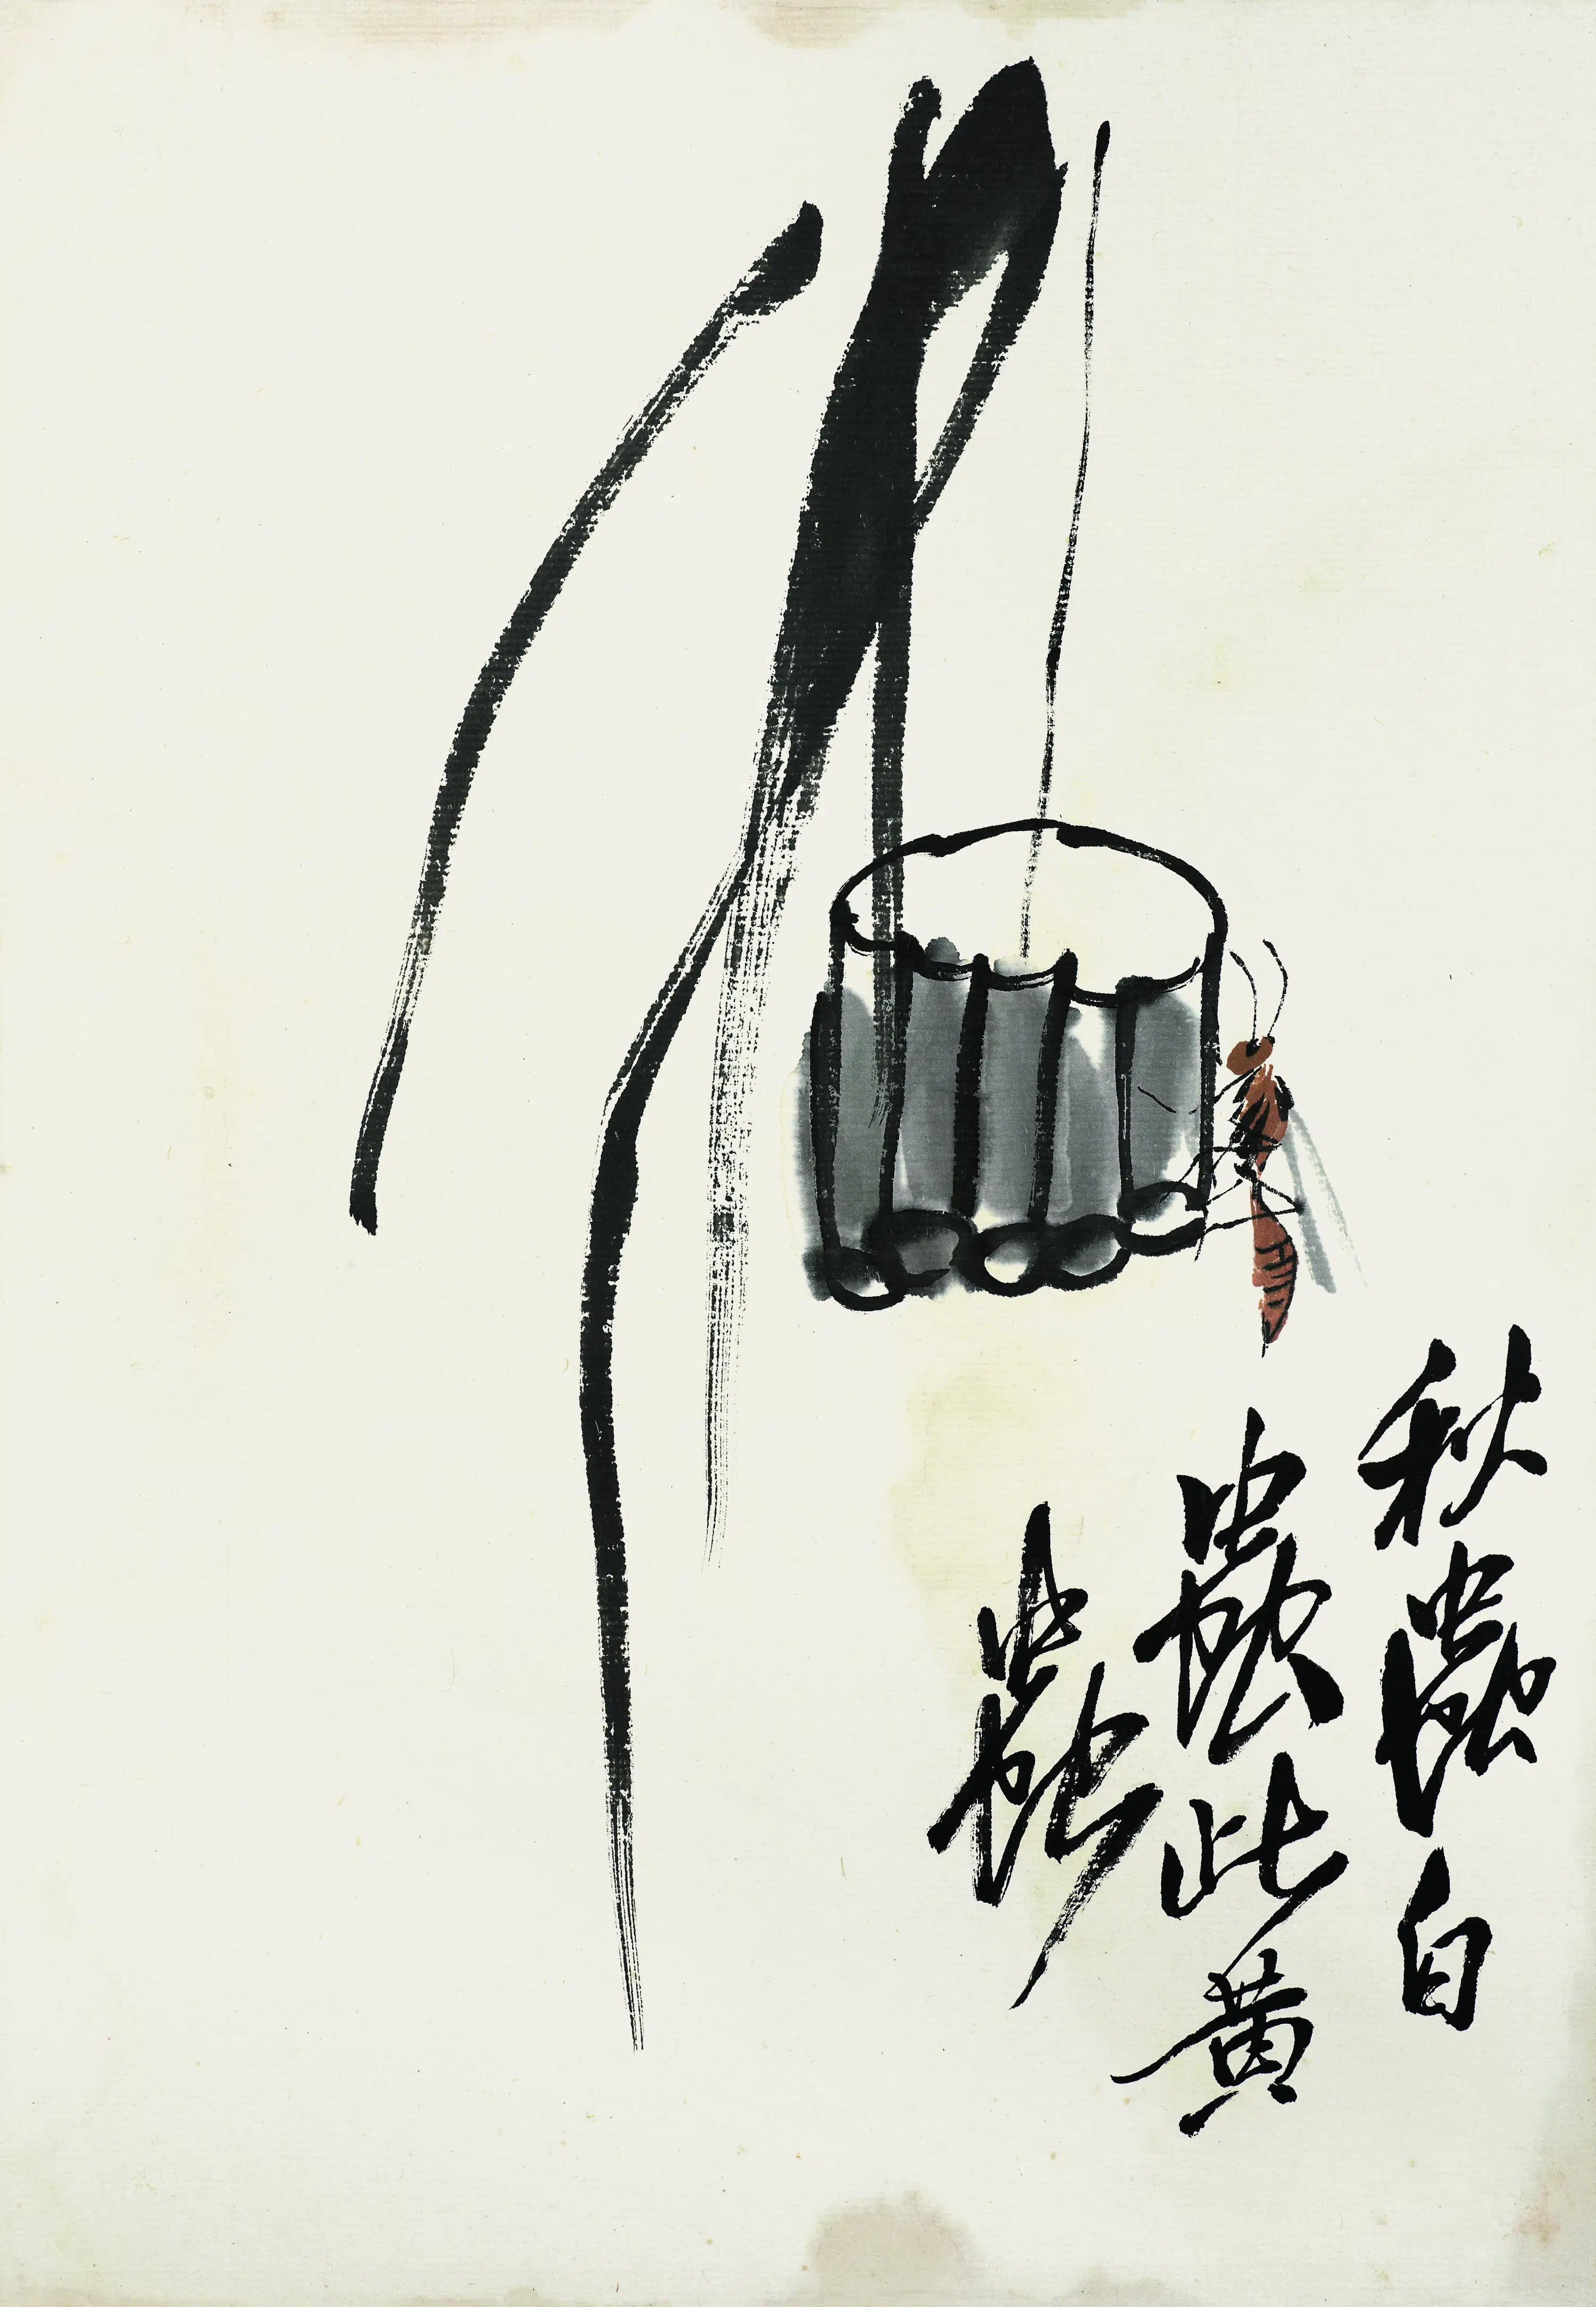 秋蟲白
蟲此黄
蟲